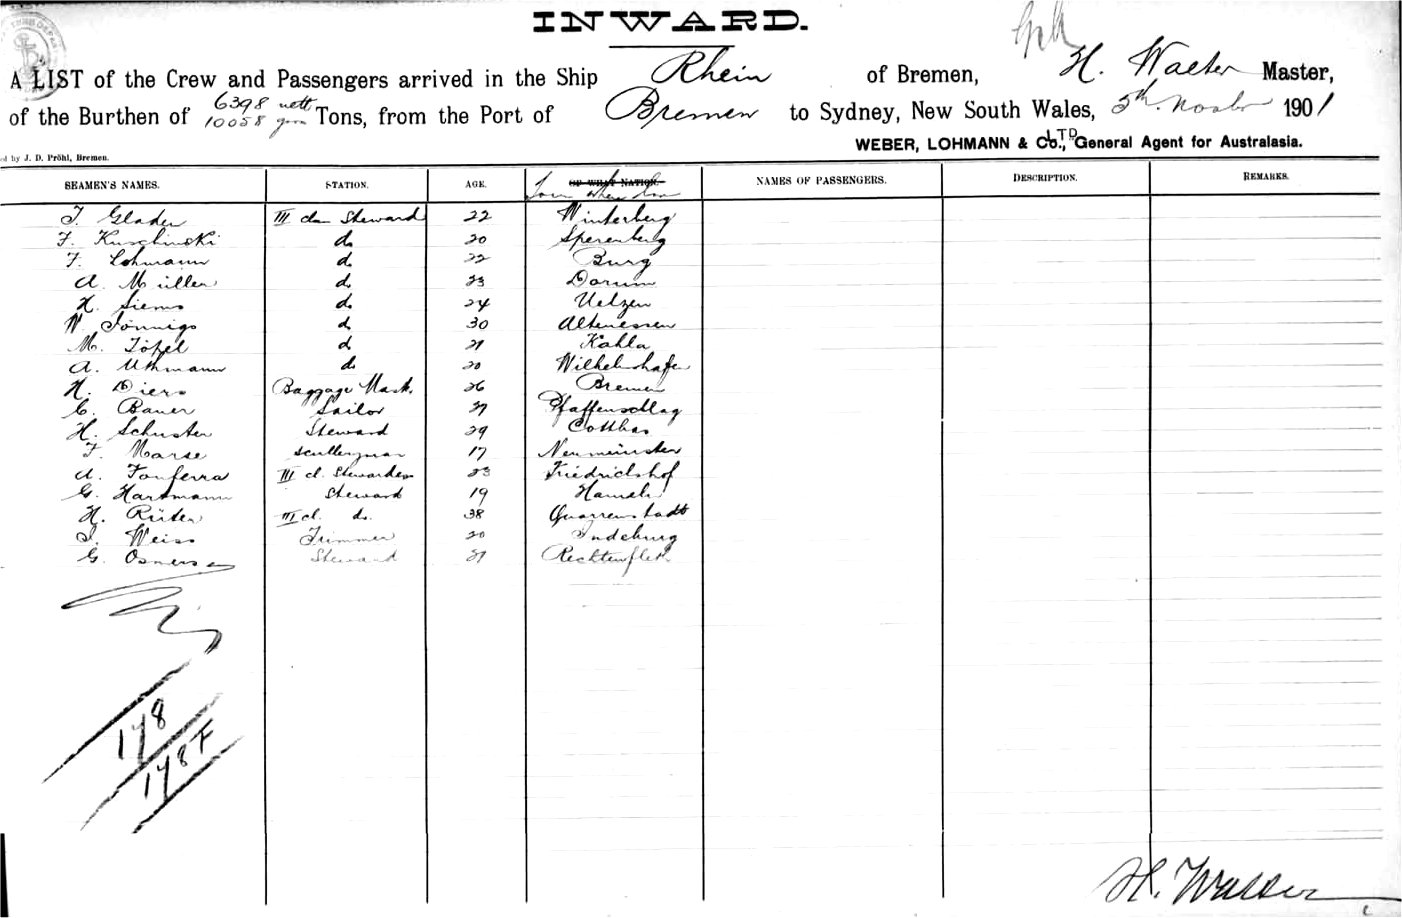 INWARD.
A LIST of the Crew and Passengers arrived in the Ship Rhein of Bremen, H. Walter Master,
of the Burthen of 6398 nett 10058 gross Tons, from the Port of Bremen to Sydney, New South Wales, 5th Novbr 1901
WEBER, LOHMANN & Co., LTD General Agent for Australasia.
ed by J. D. Pröhl, Bremen.
SEAMEN'S NAMES. STATION. AGE. OF WHAT NATION. NAMES OF PASSENGERS. DESCRIPTION. REMARKS.
Town where born
J. Glader III clas Steward 22 Winterberg
F. Kuschinski do 20 Sperenberg
F. Lohmann do 22 Burg
A. Müller do 23 Dorum
H. Siems do 24 Uelzen
W. Jönnigs do 30 Altenessen
M. Töpel do 21 Kahla
A. Uthmann do 20 Wilhelmshafen
H. Diers Baggage Mast. 26 Bremen
C. Bauer Sailor 21 Pfaffenschlag
H. Schuster Steward 29 Cottbus
F. Marse Sculleryman 17 Neumünster
A. Fonferra III cl. Stewardess 23 Friedrichshof
G. Hartmann Steward 19 Hameln
H. Rüter III cl. do. 38 Quarrenstadt
J. Weiss Trimmer 20
G. Osmers Steward 21 Rechtenfleth
178
178F
H. Walter